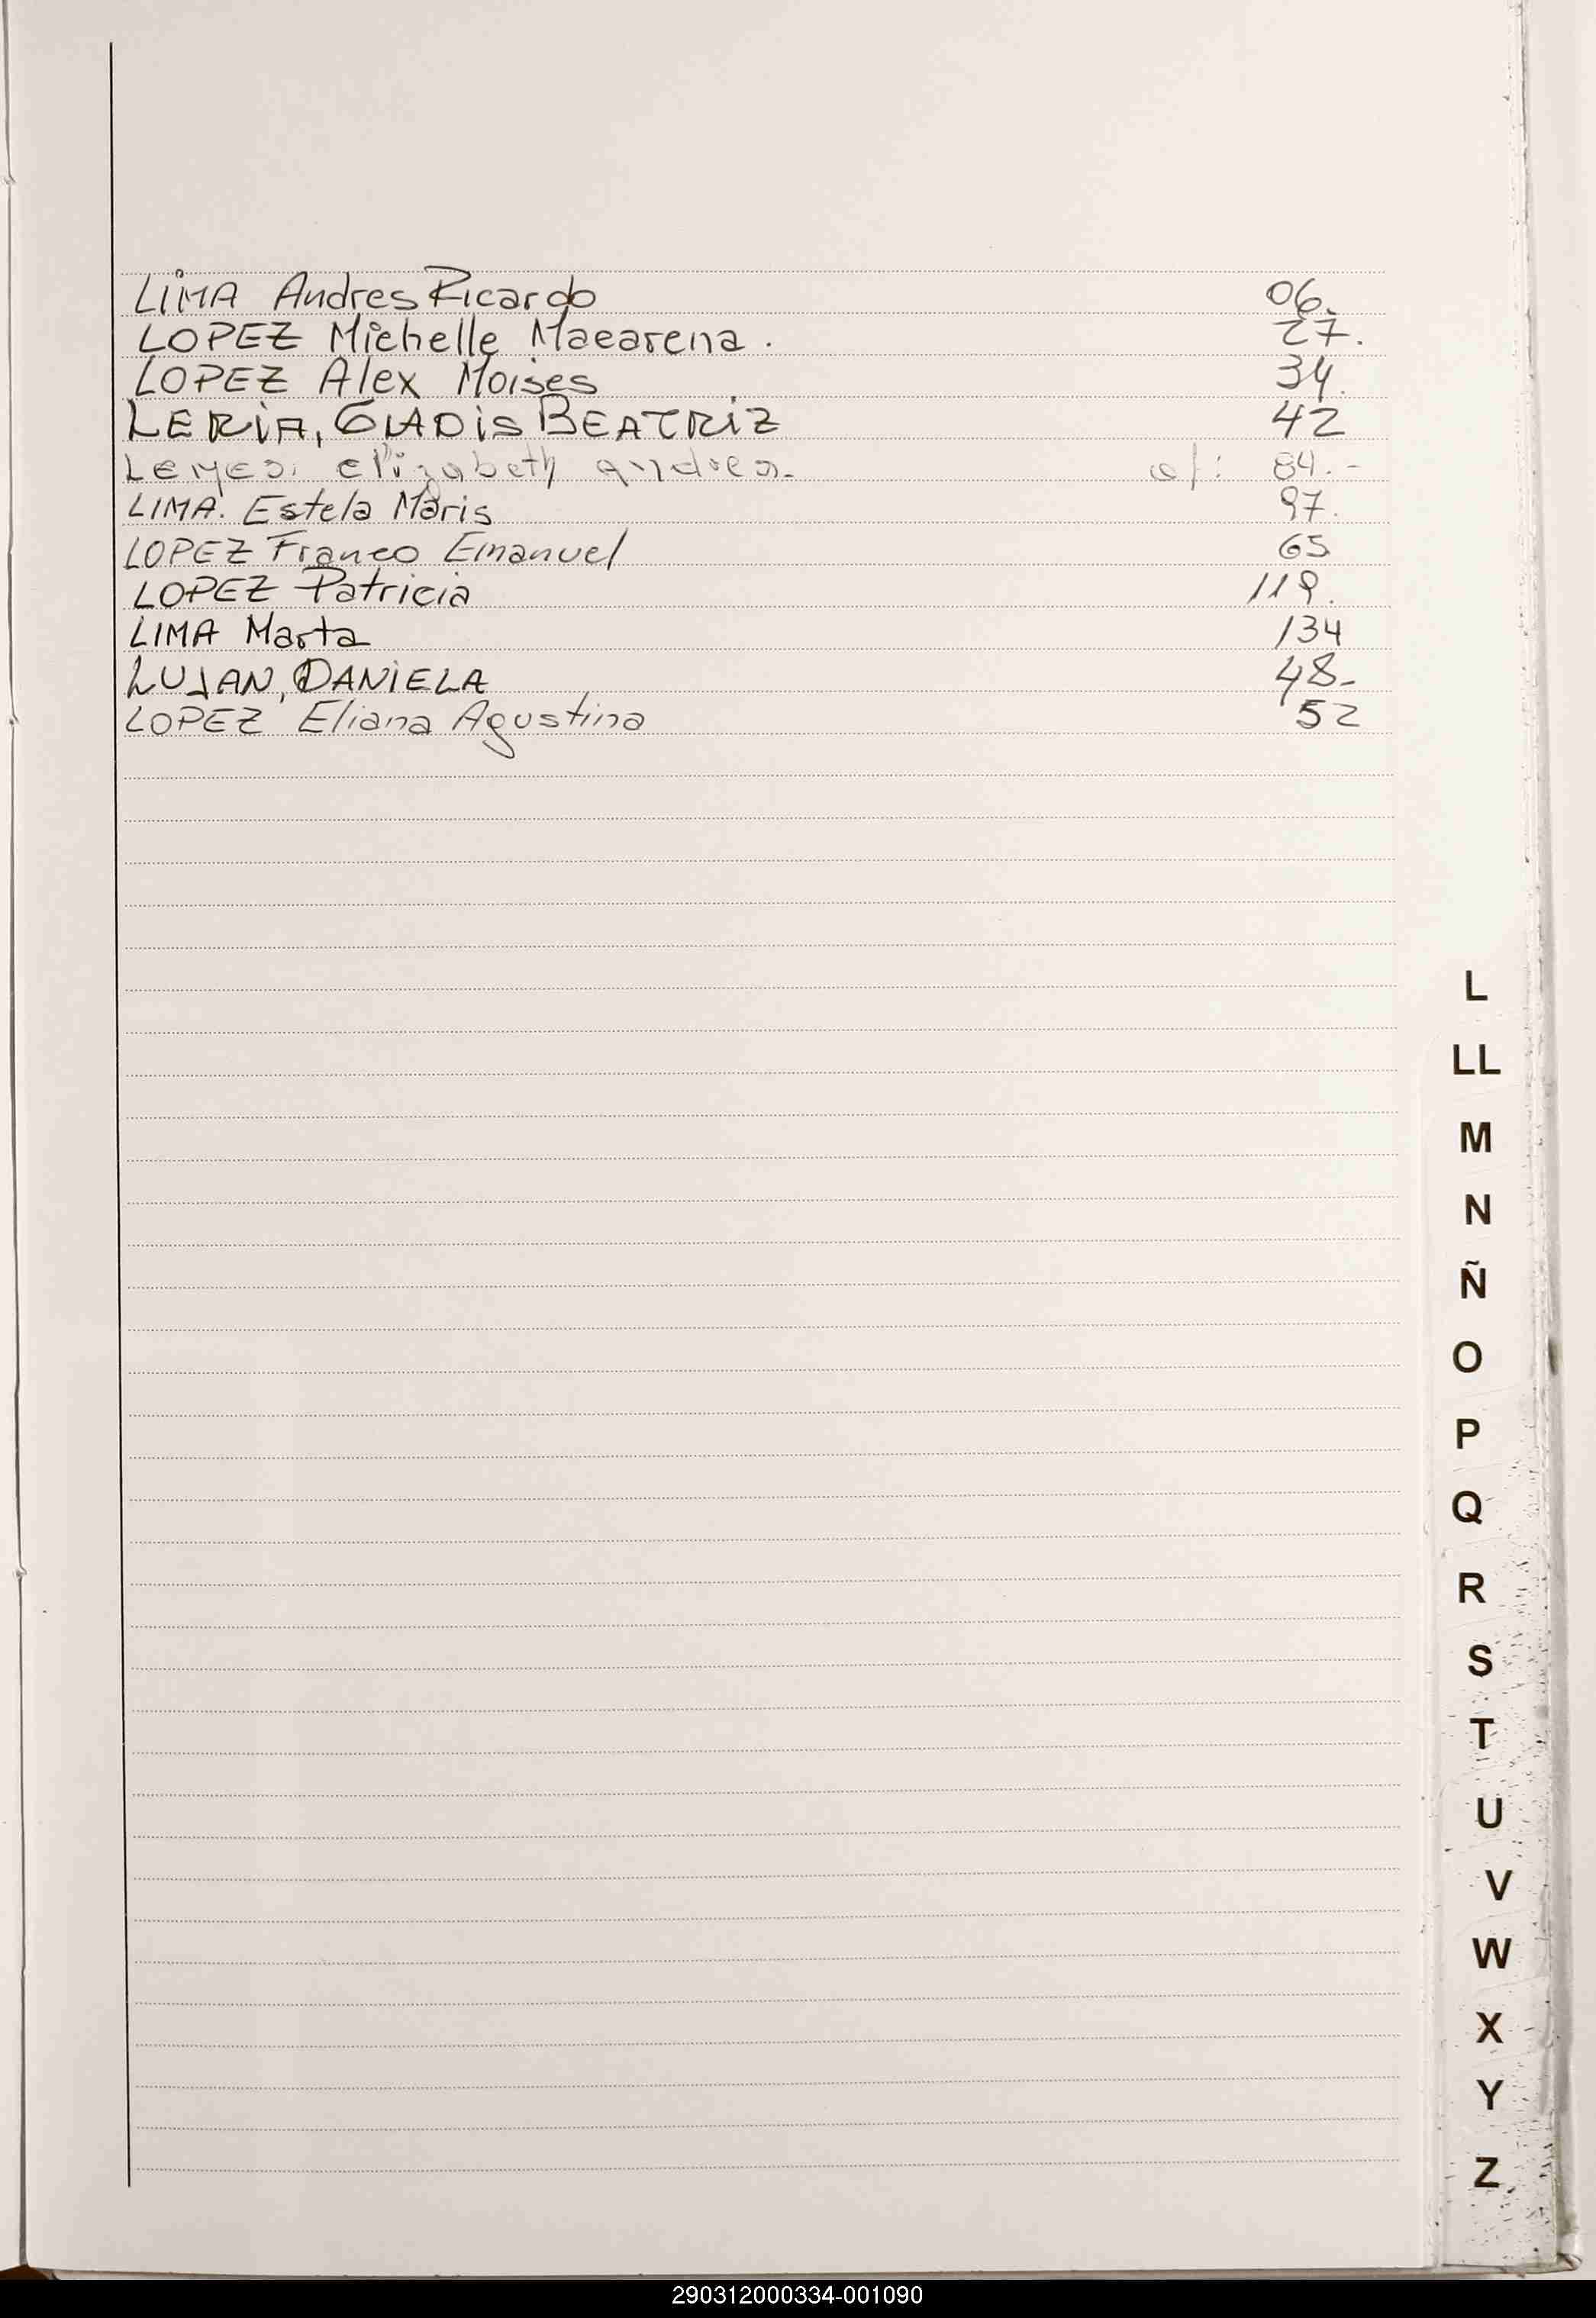 LIMA Andres Ricardo 06.
LOPEZ Michelle Macarena. 27.
LOPEZ Alex Moises 34.
LERIA, GLADIS BEATRIZ 42
Leyes. elizabeth andrea. al: 84.-
LIMA. Estela Maris 97.
LOPEZ Franco Emanuel 65
LOPEZ Patricia 119.
LIMA Marta 134
LUJAN, DANIELA 48-
LOPEZ Eliana Agustina 52
L
LL
M
N
Ñ
O
P
Q
R
S
T
U
V
W
X
Y
Z
290312000334-001090